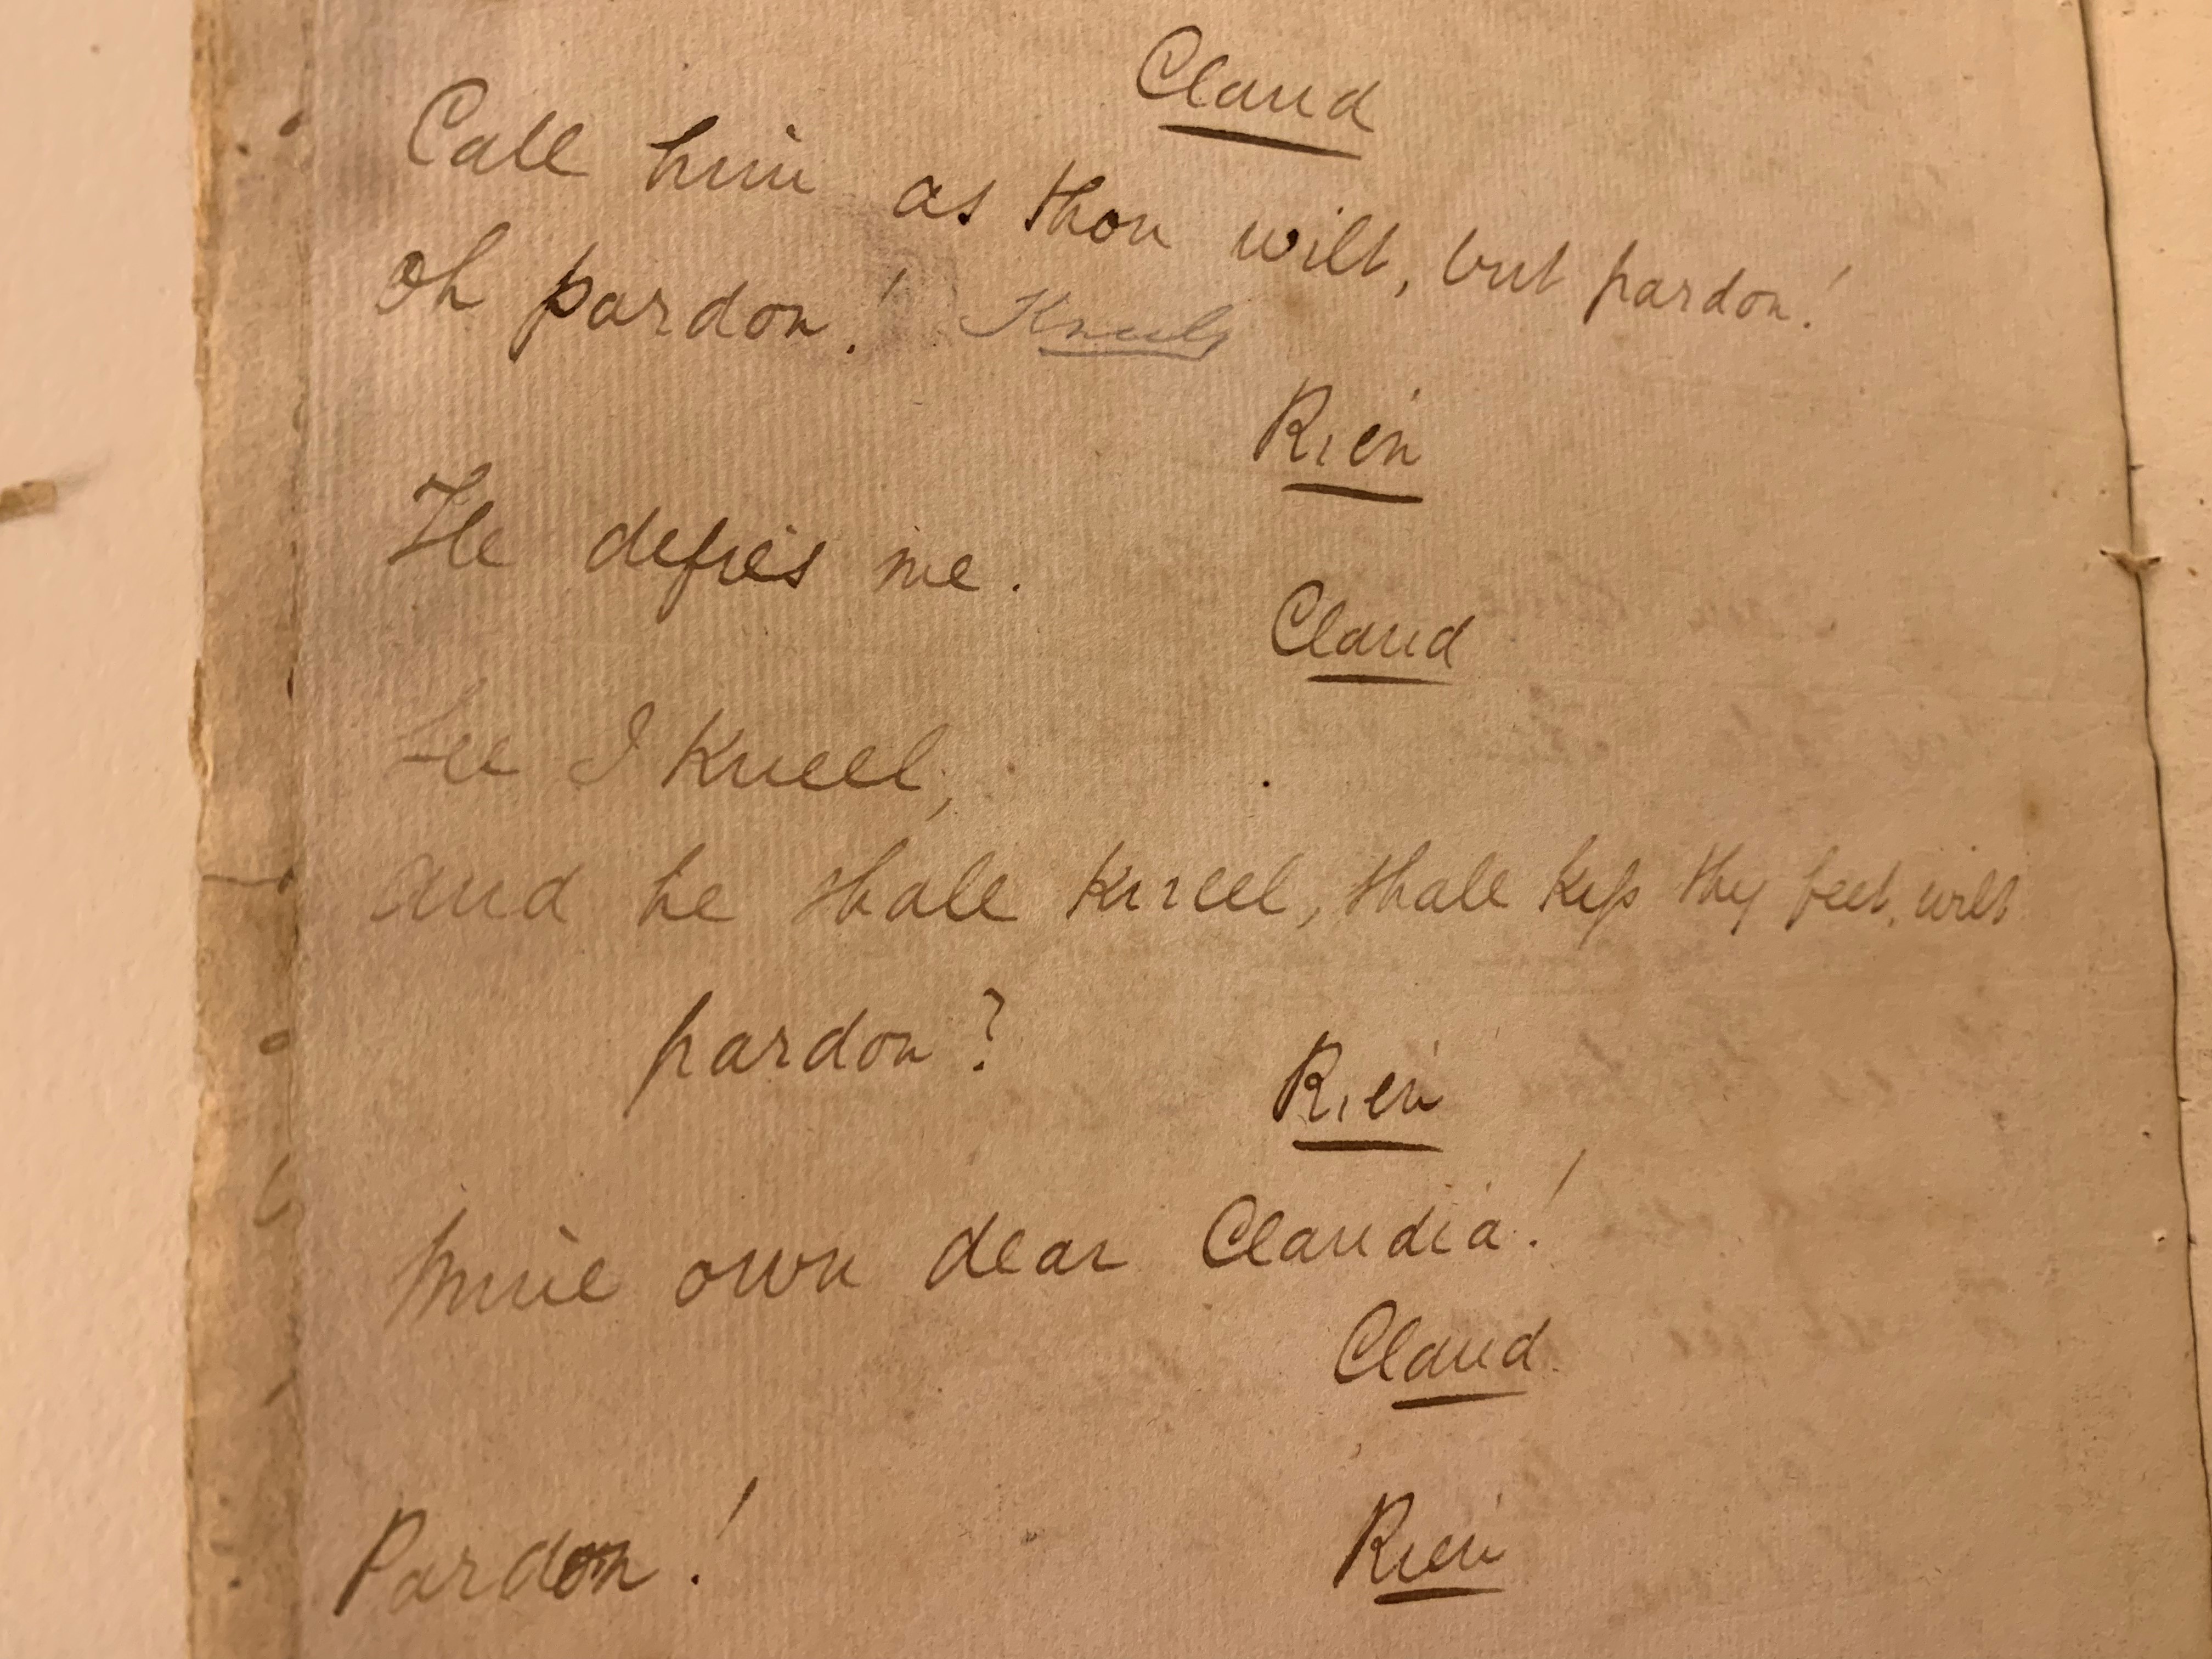 Claud
Call him as thou wilt, but pardon!
Oh pardon! Kneels
Rien
He defies me.
Claud
See I kneel,
and he shall kneel, shall kiss thy feet, wilt
pardon?
Rien
Mine own dear Claudia!
Claud.
Pardon!
Rien